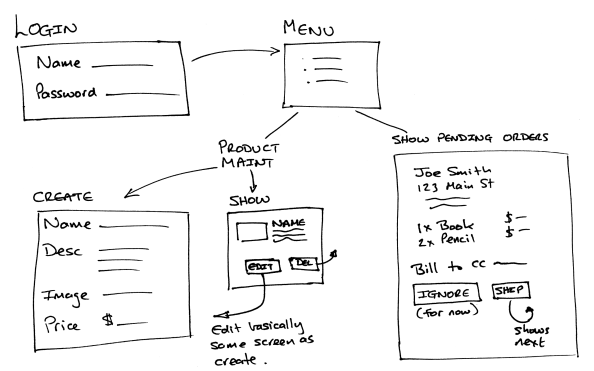 LOGIN
Name
Password
MENU
PRODUCT
MAINT
CREATE
Name
Desc
Image
Price $
SHOW
NAME
EDIT
DEL
Edit basically
some screen as
create.
SHOW PENDING ORDERS
Joe Smith
123 Main St
1x Book $
2x Pencil $
Bill to cc
IGNORE
(for now)
SHIP
shows
next